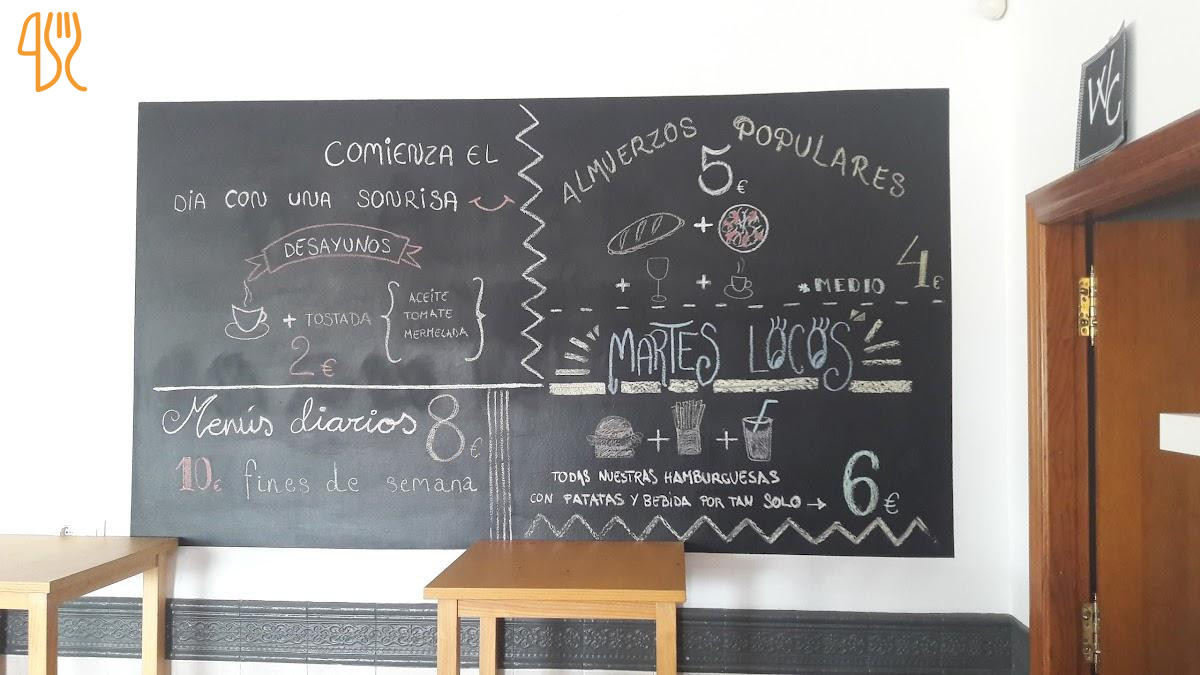 COMIENZA EL
DIA CON UNA SONRISA
DESAYUNOS
+ TOSTADA { ACEITE
TOMATE
MERMELADA }
2€
Menús diarios 8€
10€ fines de semana
ALMUERZOS POPULARES
5€
+
+ +
*MEDIO 4€
MARTES LOCOS
+ +
TODAS NUESTRAS HAMBURGUESAS
CON PATATAS Y BEBIDA POR TAN SOLO → 6€
WC